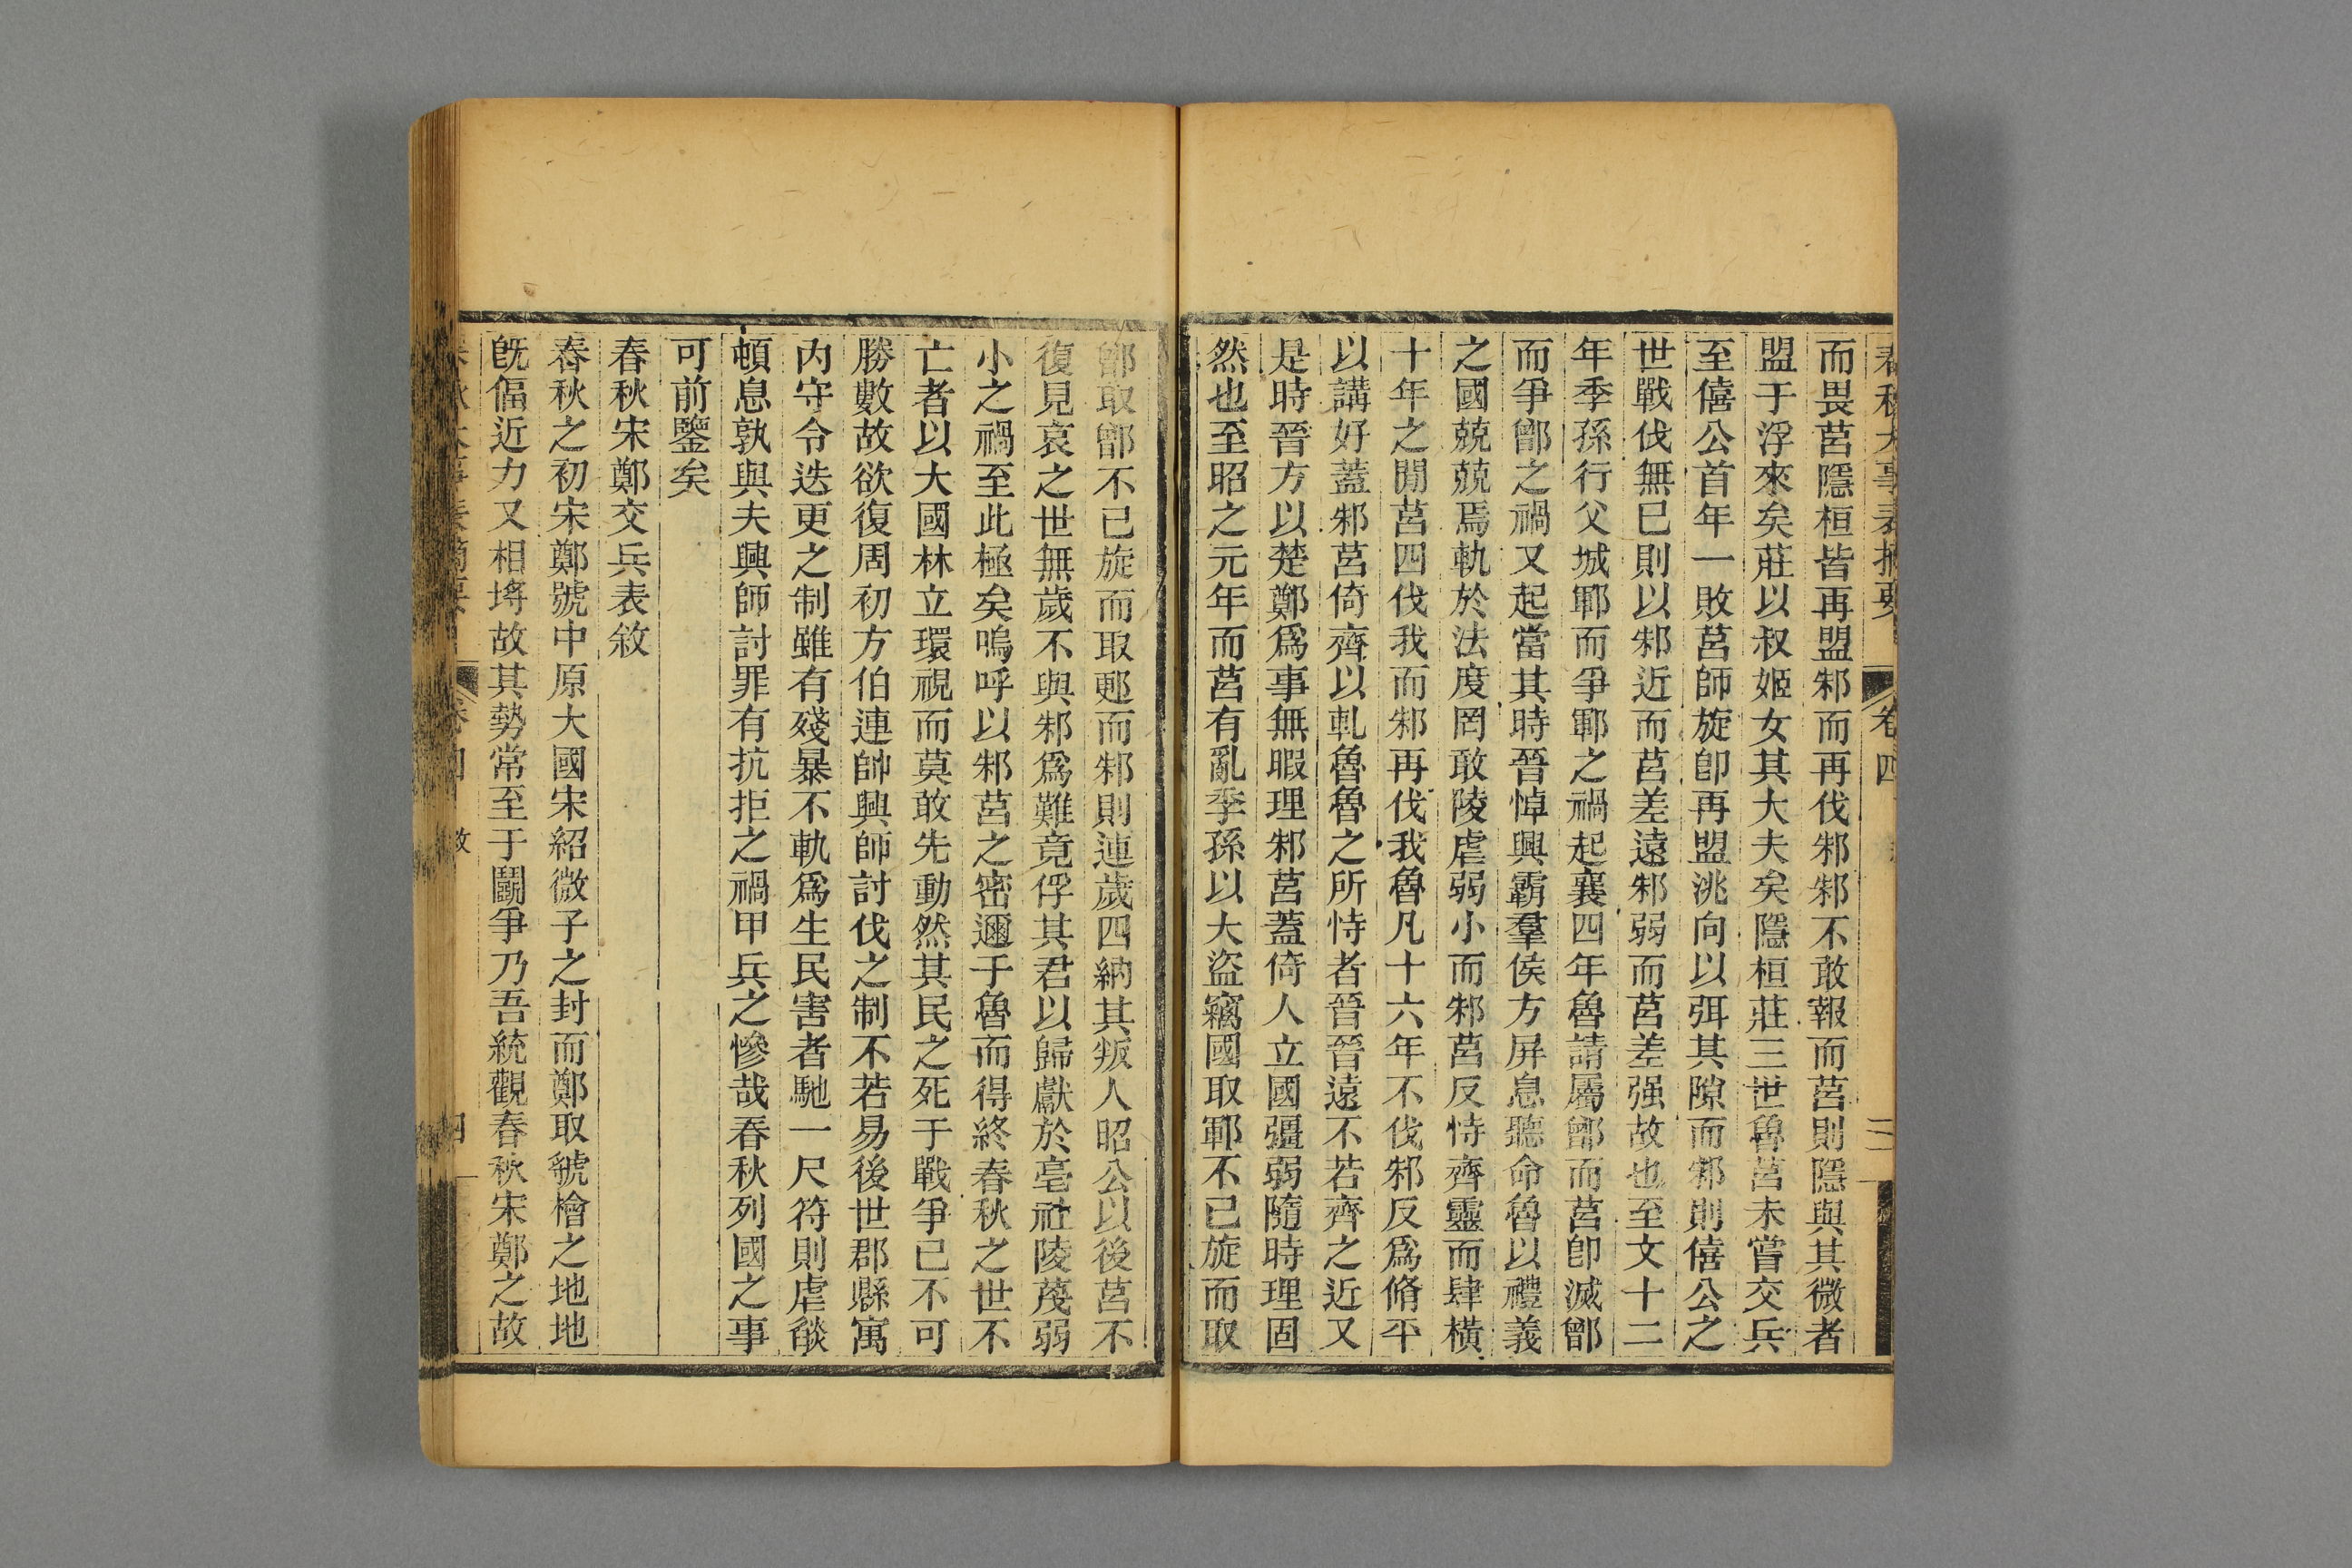 春秋大事表摘要 卷四
而畏莒隱桓皆再盟邾而再伐邾邾不敢報而莒則隱與其微者
盟于浮來矣莊以叔姬女其大夫矣隱桓莊三世魯莒未嘗交兵
至僖公首年一敗莒師旋卽再盟洮向以弭其隙而邾則僖公之
世戰伐無已則以邾近而莒差遠邾弱而莒差强故也至文十二
年季孫行父城鄆而爭鄆之禍起襄四年魯請屬鄫而莒卽滅鄫
而爭鄫之禍又起當其時晉悼興霸羣侯方屏息聽命魯以禮義
之國兢兢焉軌於法度罔敢陵虐弱小而邾莒反恃齊靈而肆橫
十年之閒莒四伐我而邾再伐我魯凡十六年不伐邾反爲脩平
以講好蓋邾莒倚齊以軋魯魯之所恃者晉晉遠不若齊之近又
是時晉方以楚鄭爲事無暇理邾莒蓋倚人立國彊弱隨時理固
然也至昭之元年而莒有亂季孫以大盜竊國取鄆不已旋而取
鄫取鄫不已旋而取郠而邾則連歲四納其叛人昭公以後莒不
復見哀之世無歲不與邾爲難竟俘其君以歸獻於亳社陵蔑弱
小之禍至此極矣嗚呼以邾莒之密邇于魯而得終春秋之世不
亡者以大國林立環視而莫敢先動然其民之死于戰爭已不可
勝數故欲復周初方伯連帥興師討伐之制不若易後世郡縣寓
内守令迭更之制雖有殘暴不軌爲生民害者馳一尺符則虐燄
頓息孰與夫興師討罪有抗拒之禍甲兵之慘哉春秋列國之事
可前鑒矣
春秋宋鄭交兵表敘
春秋之初宋鄭號中原大國宋紹微子之封而鄭取虢檜之地地
旣偪近力又相埓故其勢常至于鬭爭乃吾統觀春秋宋鄭之故